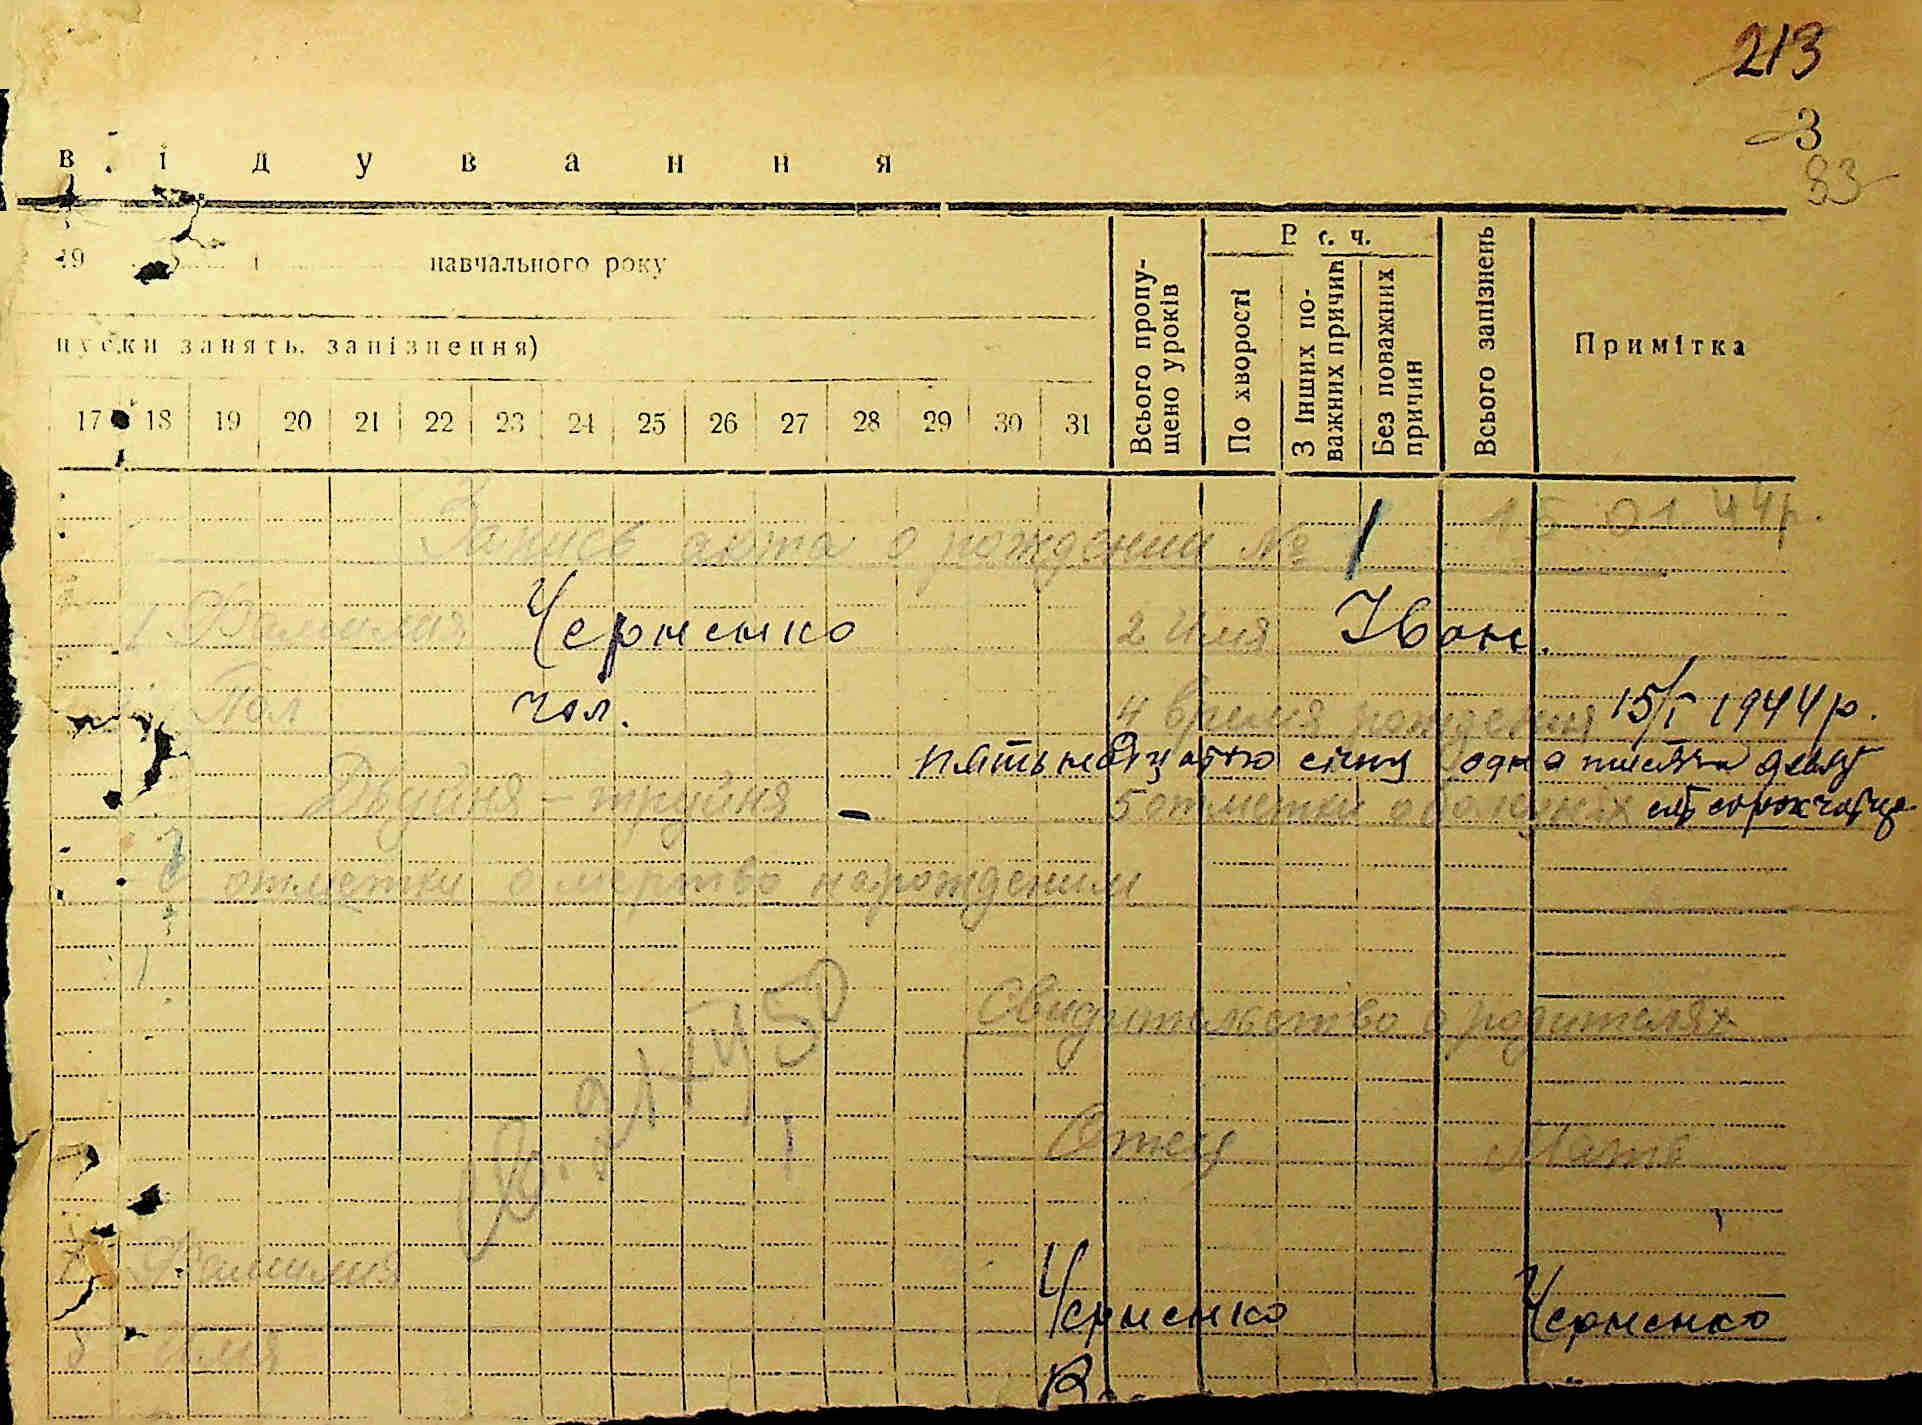 213
3
83
відування
19 навчального року
пуски занять, запізнення)
17 18 19 20 21 22 23 24 25 26 27 28 29 30 31
Всього пропущено уроків
В т. ч.
По хворості
З інших поважних причин
Без поважних причин
Всього запізнень
Примітка
15 01 44р.
Запись акта о рождении № 1
1 Фамилия Черненко 2 Имя Іван.
Пол чол. 4 Время рождения 15/I 1944 р.
пятьнадцатого січня одна тисяча девя
Двуйня - труйня – 5 отметки о сорок
6 отметки о мертво нарождении
Свидительство о родителях
Отец Мать
7 Фамилия Черненко Черненко
8 Имя